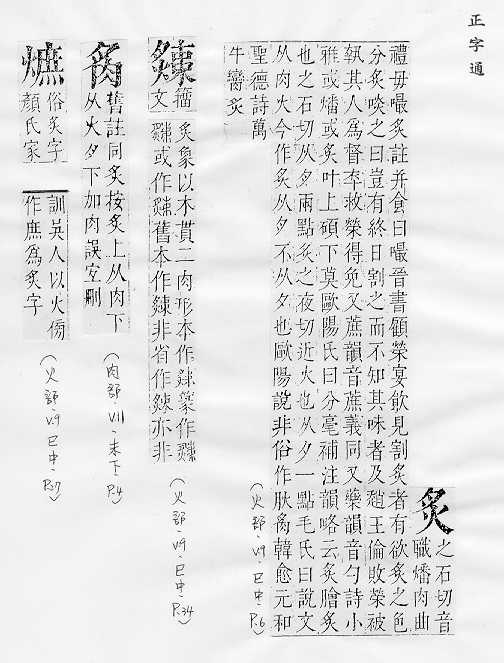 正字通
炙 之石切音
職燔肉曲
禮毋嘬炙註并食曰嘬晉書顧榮宴飲見割炙者有欲炙之色
分炙啖之曰豈有終日割之而不知其味者及趙王倫敗榮被
執其人爲督率救榮得免又蔗韻音蔗義同又藥韻音勺詩小
雅或燔或炙叶上碩下莫歐陽氏曰分毫補注韻略云炙膾炙
也之石切从夕兩點炙之夜切近火也从夕一點毛氏曰說文
从肉火今作炙从夕不从夕也歐陽說非俗作 韓愈元和
聖德詩萬
牛臠炙
(火部·V9·巳中·P.6)
籀
文
炙象以木貫二肉形本作 篆作
或作 舊本作 非省作 亦非
(火部·V9·巳中·P.34)
舊註同炙按炙上从肉下
从火夕下加肉誤宜刪
(肉部·V11·未下·P.4)
熫 俗炙字
顏氏家
訓吳人以火傍
作庶爲炙字
(火部·V9·巳中·P.37)